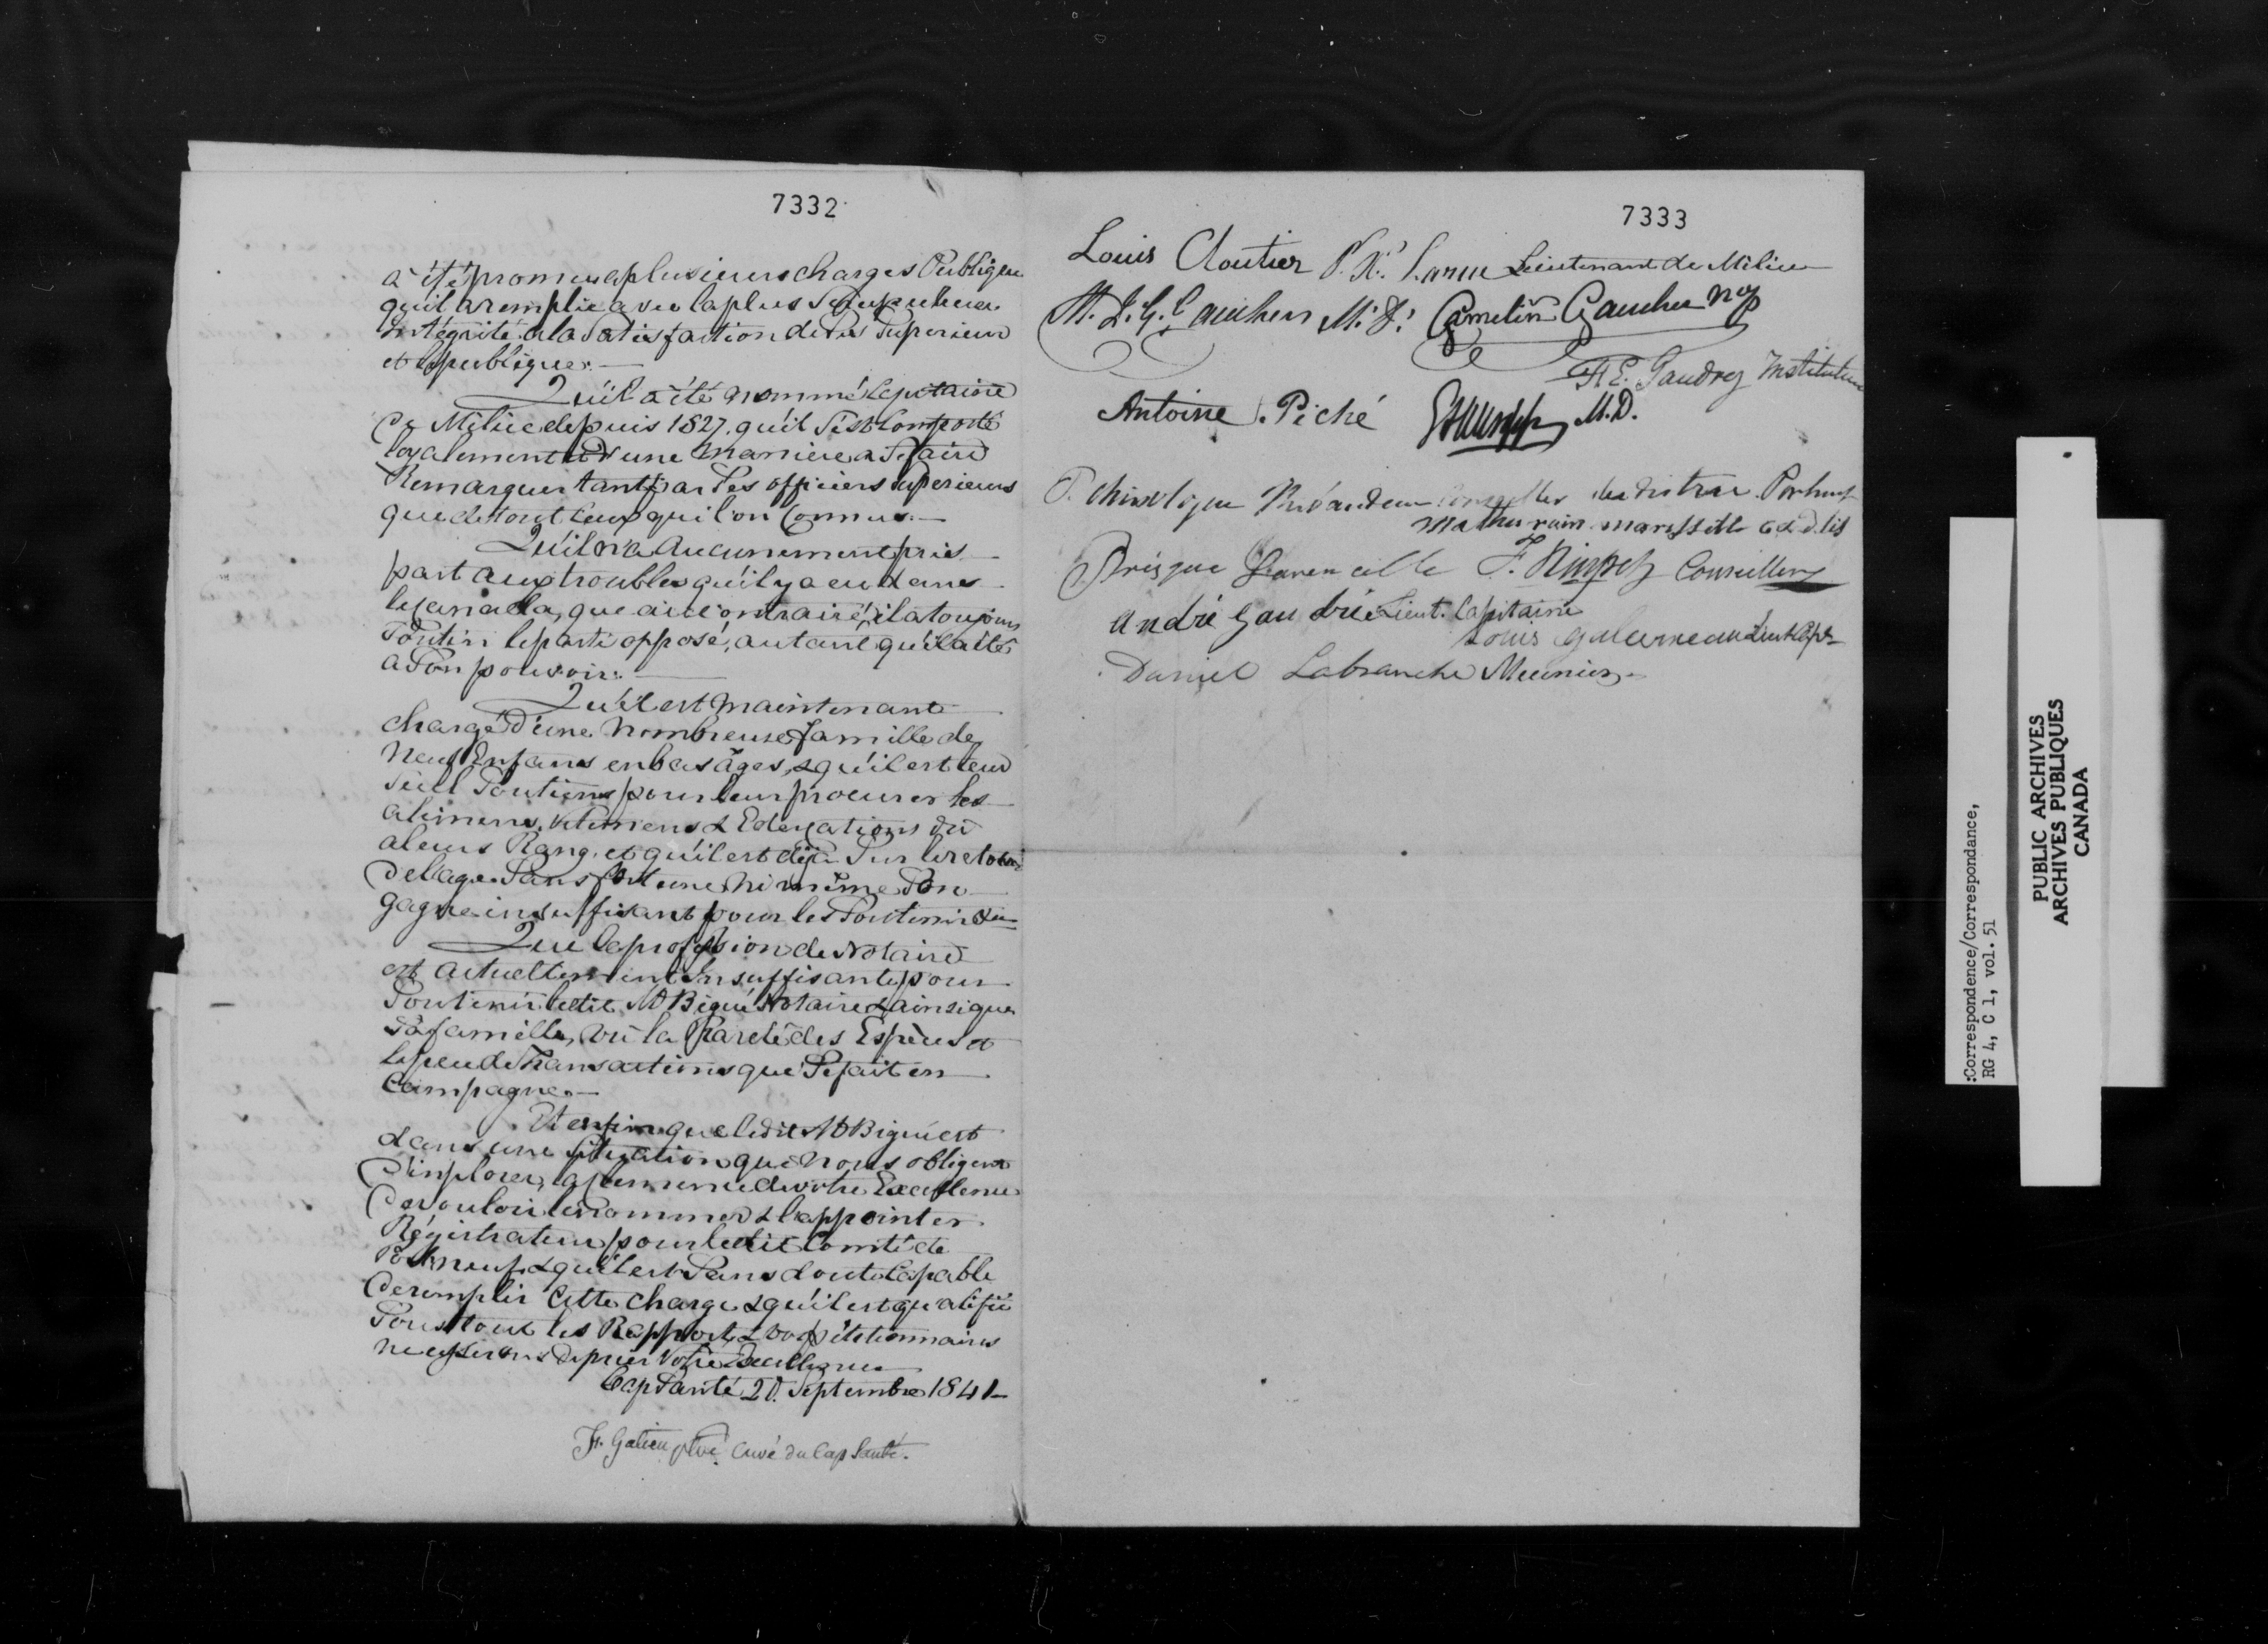 7332
a été promeu a plusieurs charges Publiques
qu'il a remplie avec la plus Scrupuleuse
intégrité a la Satisfaction de Ses Superieurs
et le publique.
Qu'il a été nommé Capitaine
De Milice depuis 1827. qu'il S'est Comporté
loyalement et d'une Maniere a Se faire
Remarquer tant par Ses officiers Superieurs
que de tout Ceux qui l'on Connus.
Qu'il n'a Aucunement pris
part aux troubles qu'il y a eu dans
le Canada, que au Contraire, il a toujours
Soutin le parti opposé, autant qu'il a été
a Son pouvoir.
Qu'il est Maintenant
chargé D'une Nombreuse famille de
Neuf Enfans en bas âges, & qu'il est leur
Seul Soutiens pour leur procurer les
alimens, Vetemens & Educations Du
a leurs Rang. et qu'il est déjà Sur le retour
De l'age Sans fortune ni même Son
gagne insuffisant pour les Soutenir
Que la profession de Notaire
est Actuellement Insuffisante pour
Soutenir ledit Mr Bigué Notaire & ainsi que
Sa famille, vu la Rareté des Espèces et
le peu de Transactions que Se fait en
Campagne.
Et enfin que ledit Mr Bigué est
dans une Situation que Nous obligent
D'implorer, la clemence de votre Excellence
De vouloir le Nommer & l'appointer
Régistrateur pour ledit Comté de
Portneuf & qu'il est Sans doute Capable
De remplir Cette Charge & qu'il est qualifié
Sous tout les Rapports & vos pétitionnaires
ne cesserons De prier Votre Excellence
Cap Santé 20. Septembre 1841
F. Gatien ptre. Curé du Cap Santé.
7333
Louis Cloutier P. X. Larue Lieutenant de Milice
M. L. G. Gauthier M. D. Camelin Gauthier
F. E. Gaudry Instituteur
Antoine . Piché M.D.
P. Conseiller du district Portneuf
Mathurin
Prisque F. Conseiller
André Gaudrie Lieut. Capitaine
Louis Galerneau Lieut Capt
Daniel Labranche Meunier
:Correspondence/Correspondance,
RG 4, C 1, vol. 51
PUBLIC ARCHIVES
ARCHIVES PUBLIQUES
CANADA